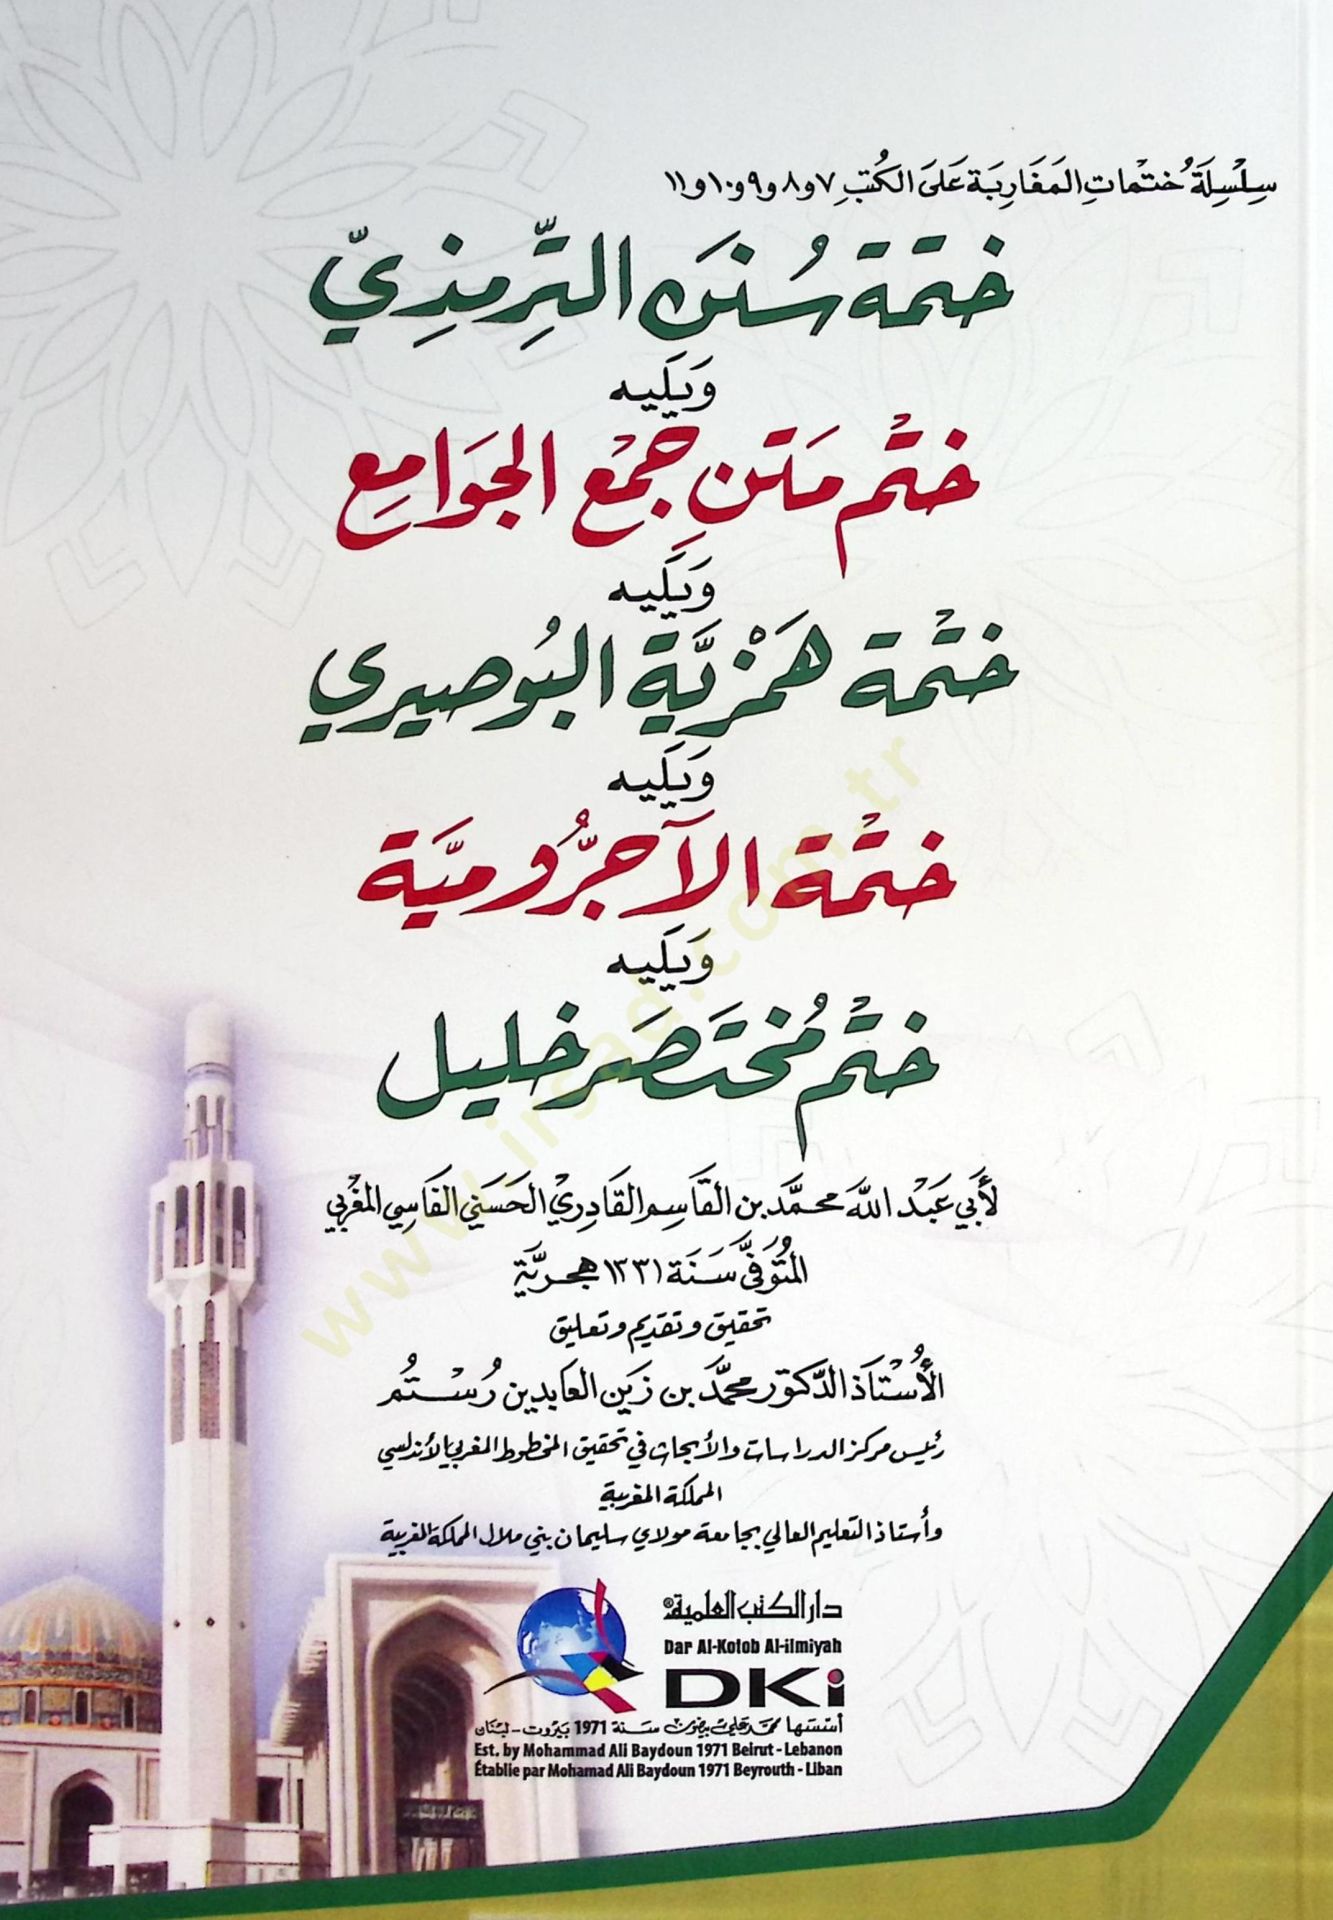 سِلْسِلَةُ ختمات المَغَارِبَة عَلَى الكُتُبِ ٧ و٨ و٩ و١٠ و١١
ختمة سُنَن التِّرمذِيّ
وَيَليه
ختْم مَتن جمْع الجَوَامِع
وَيَليه
ختْمة هَمْزيَّة البُوصيري
وَيَليه
ختْمة الآجرُّوميَّة
وَيَليه
ختْم مُختصَر خليل
لأَبي عَبْد اللَّه محمَّد بن القَاسِم القَادِريْ الحَسَني الفَاسِي المغْربي
المتُوَفَّى سَنَة ١٣٣١ هجريَّة
تحقيق وتقديم وتعليق
الأُسْتَاذ الدَّكتور محمَّد بن زَين العابدين رُسْتُم
رئيس مركز الدراسات والأبحاث في تحقيق المخطوط المغربي الأندلسي
المملكة المغربية
وأستاذ التعليم العالي بجامعة مولاي سليمان بني ملال المملكة المغربية
دار الكتب العلمية®
Dar Al-Kotob Al-ilmiyah
DKi
أسسها محمد علي بيضون سنة 1971 بيروت - لبنان
Est. by Mohammad Ali Baydoun 1971 Beirut - Lebanon
Établie par Mohamad Ali Baydoun 1971 Beyrouth - Liban
www.irsad.com.tr